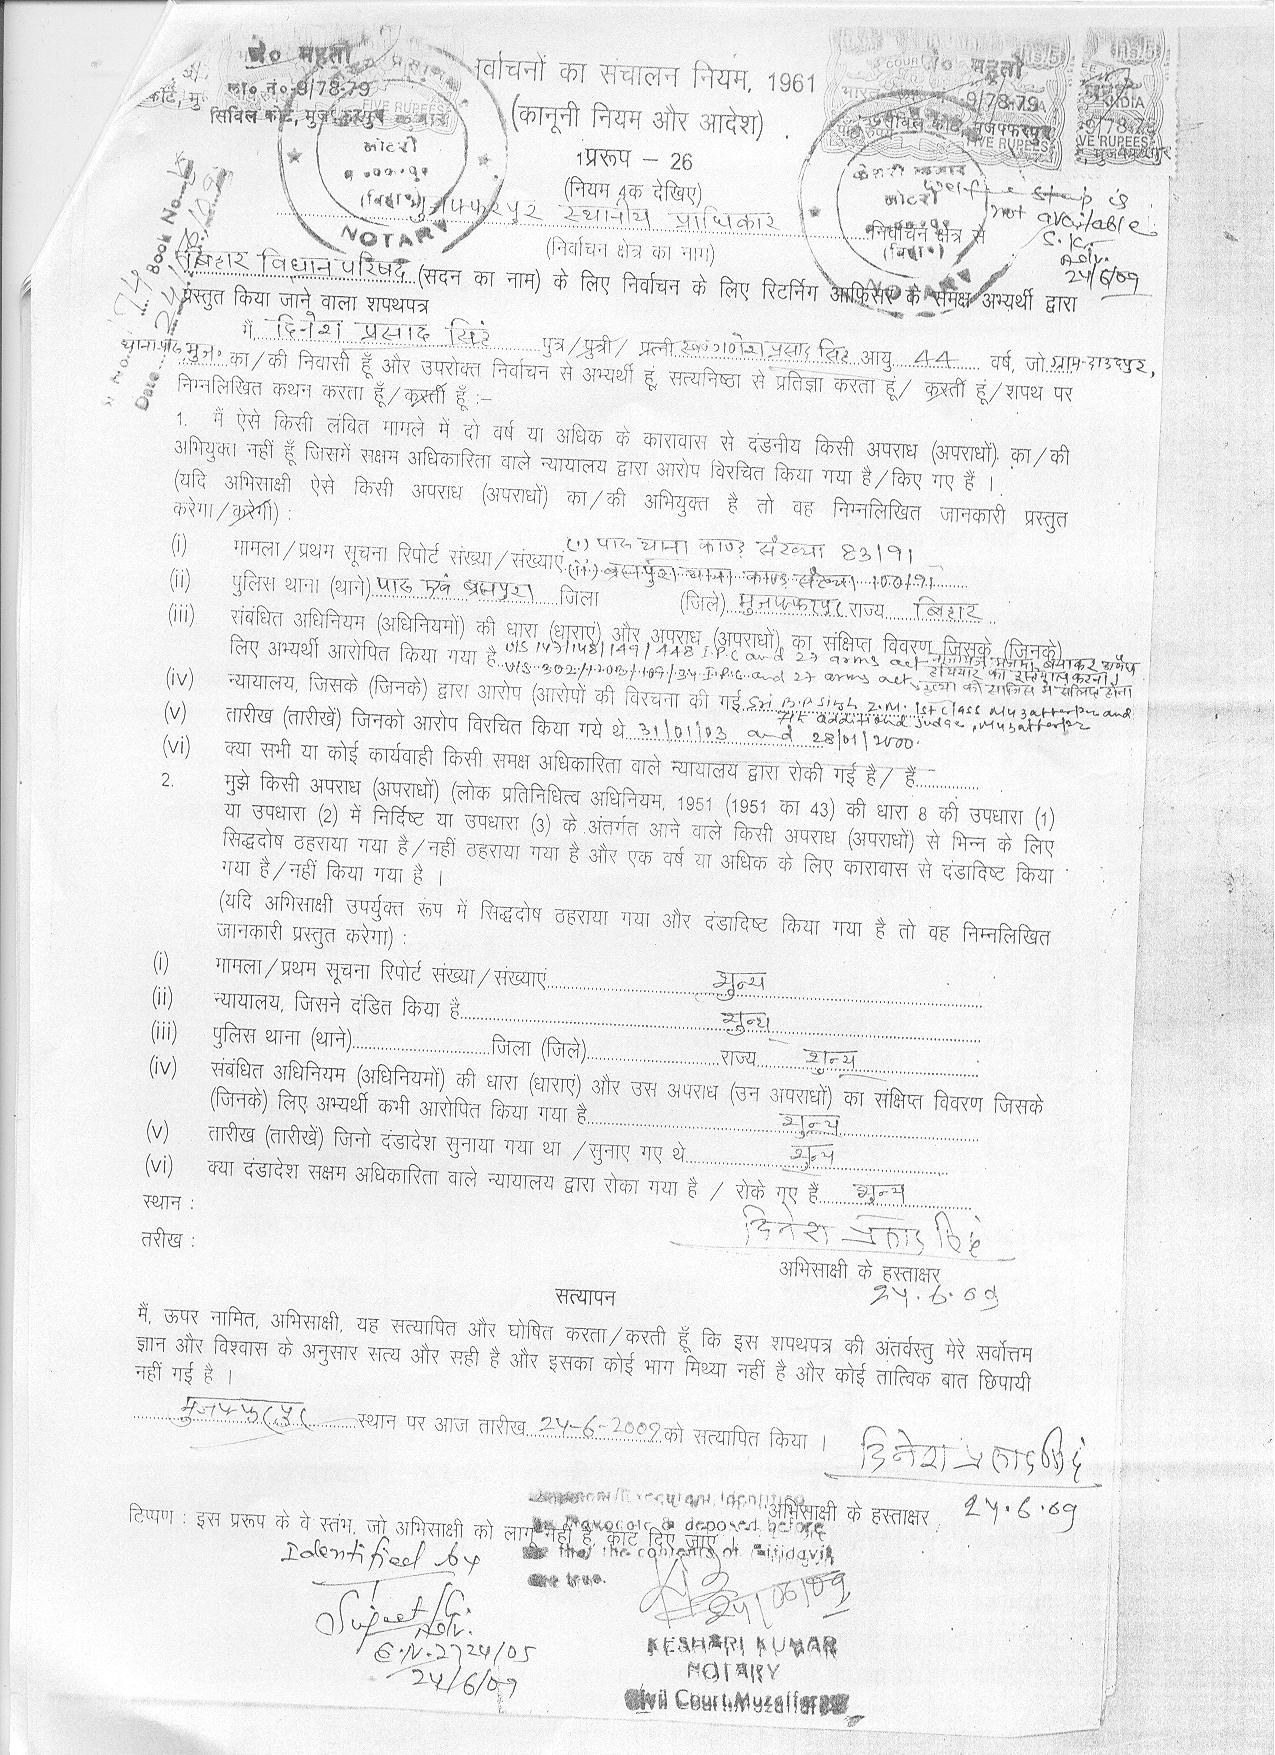 र्वाचनों का संचालन नियम, 1961
(कानूनी नियम और आदेश)
प्ररूप – 26
(नियम 4क देखिए)
मुजफ्फरपुर स्थानीय प्राधिकार निर्वाचन क्षेत्र से
(निर्वाचन क्षेत्र का नाम)
बिहार विधान परिषद (सदन का नाम) के लिए निर्वाचन के लिए रिटर्निंग आफिसर के समक्ष अभ्यर्थी द्वारा
प्रस्तुत किया जाने वाला शपथपत्र
मैं दिनेश प्रसाद सिंह पुत्र/पुत्री/पत्नी स्व० गणेश प्रसाद सिंह आयु 44 वर्ष, जो ग्राम-दाउदपुर,
का/की निवासी हूँ और उपरोक्त निर्वाचन से अभ्यर्थी हूं, सत्यनिष्ठा से प्रतिज्ञा करता हूं/ करती हूं/शपथ पर
निम्नलिखित कथन करता हूँ/करती हूँ :–
1. मैं ऐसे किसी लंबित मामले में दो वर्ष या अधिक के कारावास से दंडनीय किसी अपराध (अपराधों) का/की
अभियुक्त नहीं हूँ जिसमें सक्षम अधिकारिता वाले न्यायालय द्वारा आरोप विरचित किया गया है/किए गए हैं ।
(यदि अभिसाक्षी ऐसे किसी अपराध (अपराधों) का/की अभियुक्त है तो वह निम्नलिखित जानकारी प्रस्तुत
करेगा/करेगी) :
(i) मामला/प्रथम सूचना रिपोर्ट संख्या/संख्याएं (i) पारू थाना काण्ड संख्या 83/91
(ii) थाना काण्ड संख्या 100/91
(ii) पुलिस थाना (थाने) पारू एवं जिला (जिले) मुजफ्फरपुर राज्य बिहार
(iii) संबंधित अधिनियम (अधिनियमों) की धारा (धाराएं) और अपराध (अपराधों) का संक्षिप्त विवरण जिसके (जिनके)
लिए अभ्यर्थी आरोपित किया गया है U/S 147/148/149/448 I.P.C and 27 arms act
U/S 302/120B/109/34 I.P.C. and 27 arms act
(iv) न्यायालय, जिसके (जिनके) द्वारा आरोप (आरोपों की विरचना की गई Sri B.P. Singh J.M. 1st Class Muzaffarpur and
7th additional Judge, Muzaffarpur
(v) तारीख (तारीखें) जिनको आरोप विरचित किया गये थे 31/01/03 and 28/01/2000.
(vi) क्या सभी या कोई कार्यवाही किसी समक्ष अधिकारिता वाले न्यायालय द्वारा रोकी गई है/ हैं
2. मुझे किसी अपराध (अपराधों) (लोक प्रतिनिधित्व अधिनियम, 1951 (1951 का 43) की धारा 8 की उपधारा (1)
या उपधारा (2) में निर्दिष्ट या उपधारा (3) के अंतर्गत आने वाले किसी अपराध (अपराधों) से भिन्न के लिए
सिद्धदोष ठहराया गया है/नहीं ठहराया गया है और एक वर्ष या अधिक के लिए कारावास से दंडादिष्ट किया
गया है/नहीं किया गया है ।
(यदि अभिसाक्षी उपर्युक्त रूप में सिद्धदोष ठहराया गया और दंडादिष्ट किया गया है तो वह निम्नलिखित
जानकारी प्रस्तुत करेगा) :
(i) मामला/प्रथम सूचना रिपोर्ट संख्या/संख्याएं शुन्य
(ii) न्यायालय, जिसने दंडित किया है शुन्य
(iii) पुलिस थाना (थाने) जिला (जिले) राज्य शुन्य
(iv) संबंधित अधिनियम (अधिनियमों) की धारा (धाराएं) और उस अपराध (उन अपराधों) का संक्षिप्त विवरण जिसके
(जिनके) लिए अभ्यर्थी कभी आरोपित किया गया है शुन्य
(v) तारीख (तारीखें) जिनो दंडादेश सुनाया गया था /सुनाए गए थे शुन्य
(vi) क्या दंडादेश सक्षम अधिकारिता वाले न्यायालय द्वारा रोका गया है / रोके गए हैं शुन्य
स्थान :
दिनेश प्रसाद सिंह
तारीख :
अभिसाक्षी के हस्ताक्षर
24.6.09
सत्यापन
मैं, ऊपर नामित, अभिसाक्षी, यह सत्यापित और घोषित करता/करती हूँ कि इस शपथपत्र की अंतर्वस्तु मेरे सर्वोत्तम
ज्ञान और विश्वास के अनुसार सत्य और सही है और इसका कोई भाग मिथ्या नहीं है और कोई तात्विक बात छिपायी
नहीं गई है ।
मुजफ्फरपुर स्थान पर आज तारीख 24-6-2009 को सत्यापित किया ।
दिनेश प्रसाद सिंह
अभिसाक्षी के हस्ताक्षर 24.6.09
टिप्पण : इस प्ररूप के वे स्तंभ, जो अभिसाक्षी को लागू नहीं है, काट दिए जाए ।
Identified by
Adv.
E.N. 2724/05
24/6/09
24/06/09
KESHARI KUMAR
NOTARY
Civil Court, Muzaffarpur